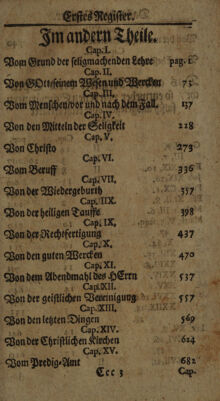 Erstes Register.
Im andern Theile.
Cap. I.
Vom Grund der seligmachenden Lehre pag. 1
Cap. II.
Von GOtt seinem Wesen und Wercken 75
Cap. III.
Vom Menschen/vor und nach dem Fall. 137
Cap. IV.
Von den Mitteln der Seligkeit 228
Cap. V.
Von Christo 273
Cap. VI.
Vom Beruff 336
Cap. VII.
Von der Wiedergeburth 357
Cap. IIX.
Von der heiligen Tauffe 398
Cap. IX.
Von der Rechtfertigung 437
Cap. X.
Von den guten Wercken 470
Cap. XI.
Von dem Abendmahl des HErrn 537
Cap. XII.
Von der geistlichen Vereinigung 557
Cap. XIII.
Von den letzten Dingen 569
Cap. XIV.
Von der Christlichen Kirchen 614
Cap. XV.
Vom Predig-Amt 682
Ccc 3 Cap.